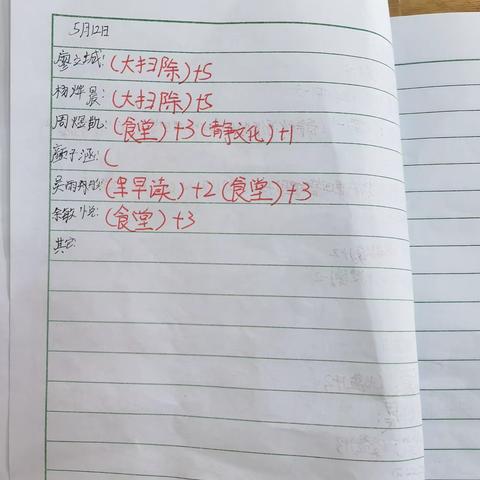 5月12日
廖立城:(大扫除)+5
杨烨晨:(大扫除)+5
周煜凯:(食堂)+3(静文化)+1
颜子涵:(
吴雨 :(早读)+2(食堂)+3
余敏悦:(食堂)+3
其它: